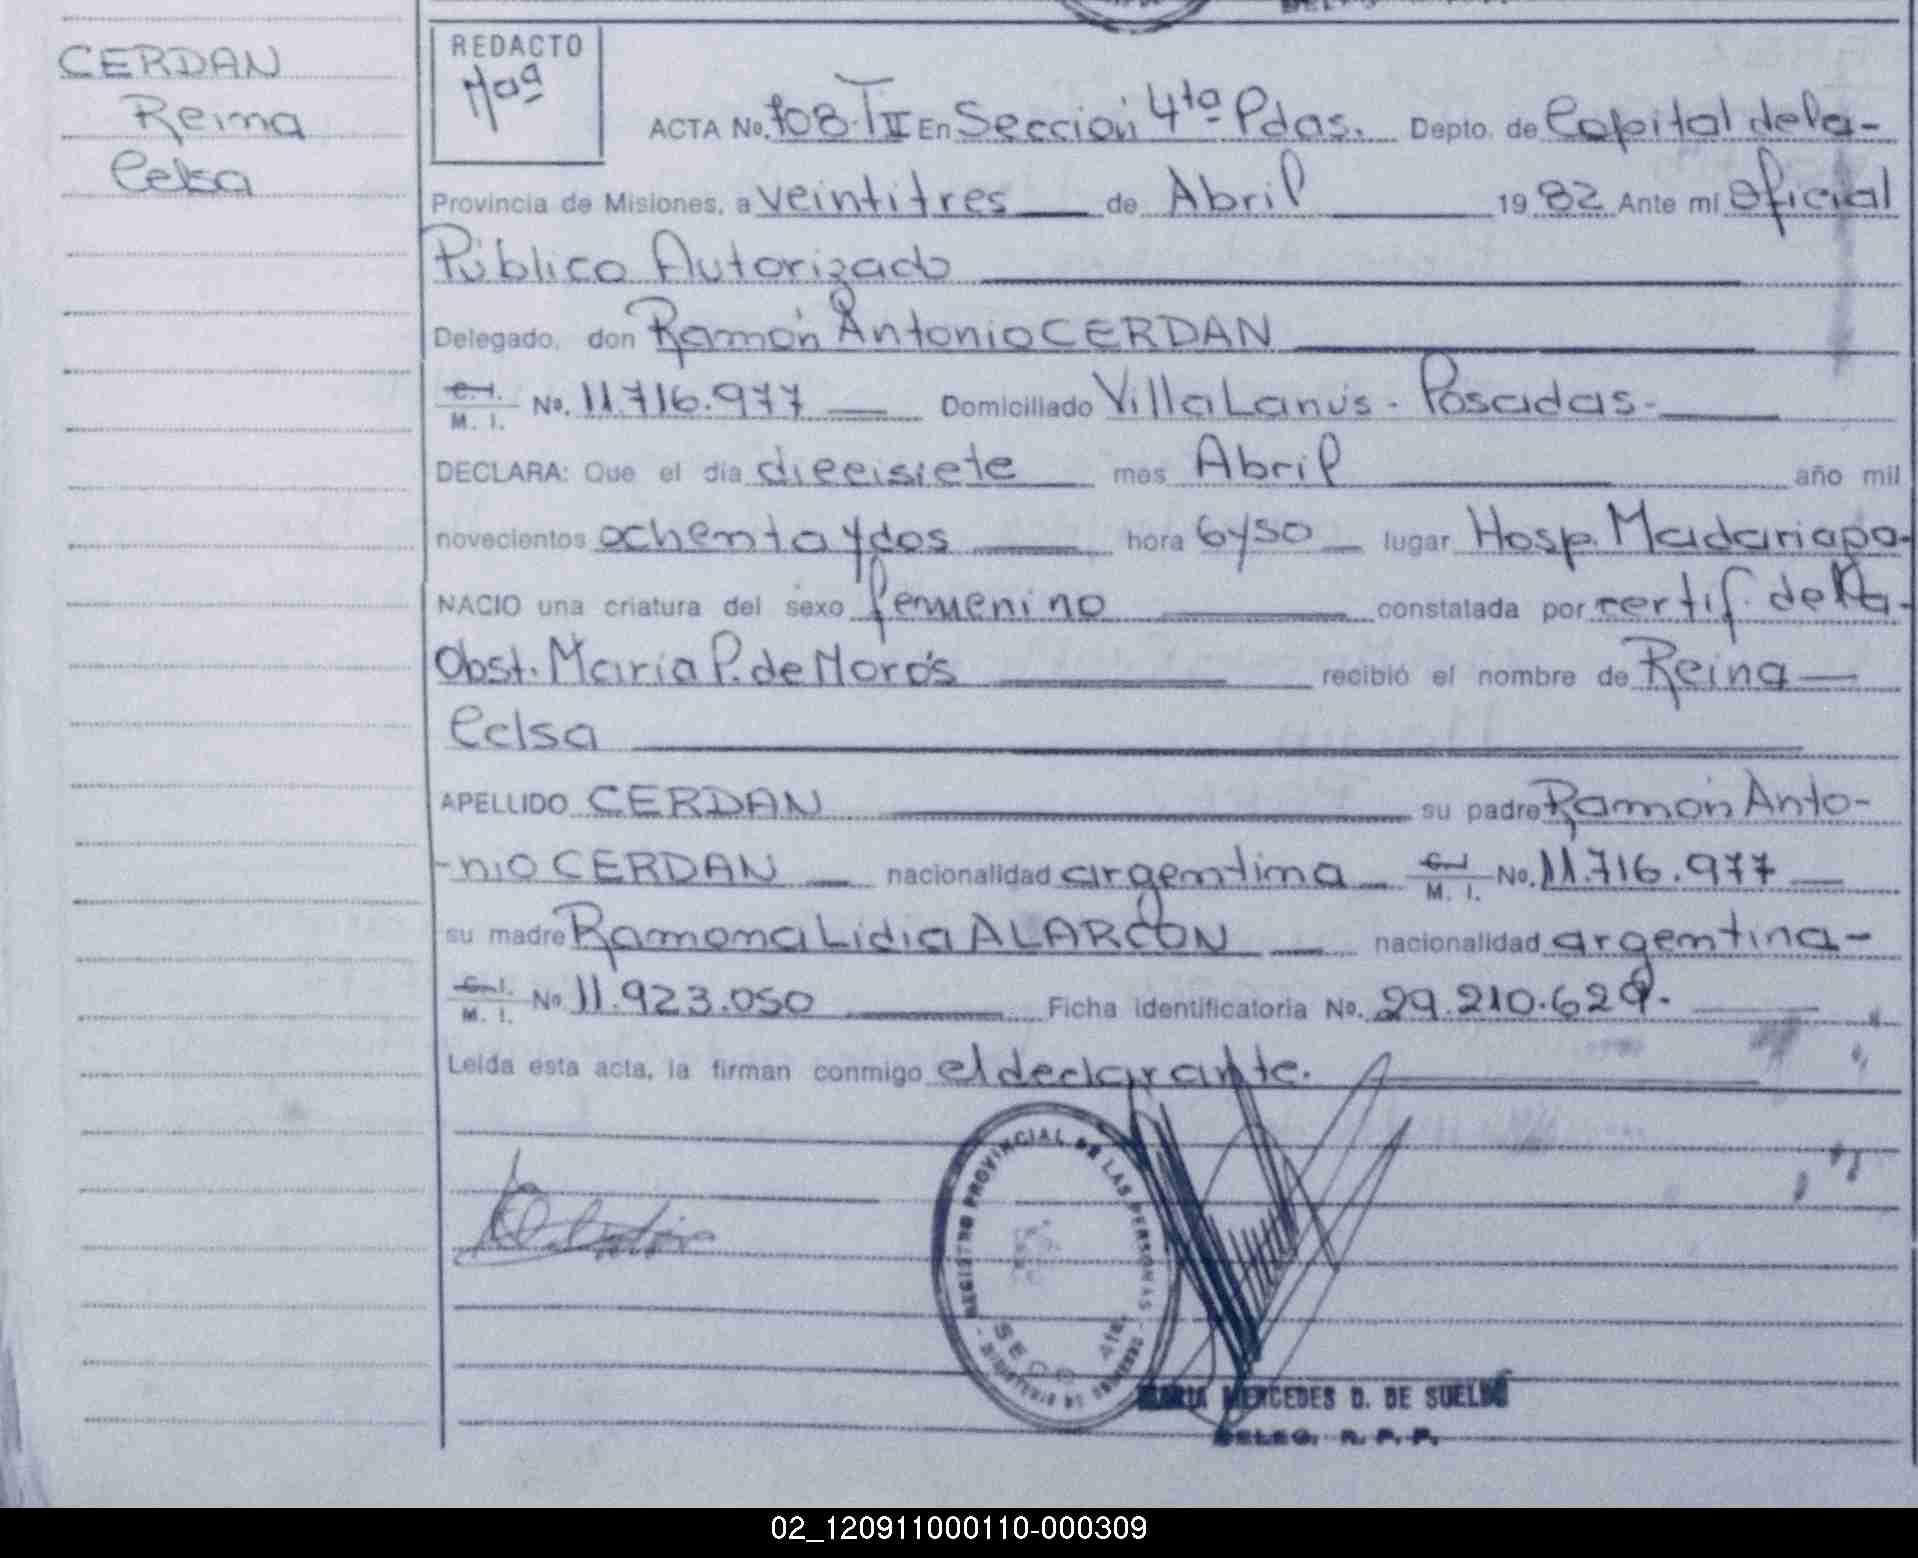 CERDAN
Reina
Celsa
REDACTO
ACTA No. 108-TII En Sección 4ta Pdas. Depto. de Capital de la-
Provincia de Misiones, a veintitres de Abril 1982 Ante mi Oficial
Público Autorizado
Delegado, don Ramón Antonio CERDAN
C.I. M. I. No. 11.716.977 Domiciliado Villa Lanús - Posadas-
DECLARA: Que el día diecisiete mes Abril año mil
novecientos ochenta y dos hora 6y50 lugar Hosp. Madariaga-
NACIO una criatura del sexo femenino constatada por certif. de la-
Obst. Maria P. de Morós recibió el nombre de Reina
Celsa
APELLIDO CERDAN su padre Ramón Anto-
-nio CERDAN nacionalidad argentina C.I. M. I. No. 11.716.977
su madre Ramona Lidia ALARCON nacionalidad argentina-
C.I. M. I. No 11.923.050 Ficha identificatoria No. 29.210.629.
Leída esta acta, la firman conmigo el declarante.
REGISTRO PROVINCIAL DE LAS PERSONAS
- MINISTERIO DE GOBIERNO -
SECC 4ta.
MARIA MERCEDES D. DE SUELDO
DELEG. R. P. P.
02_120911000110-000309